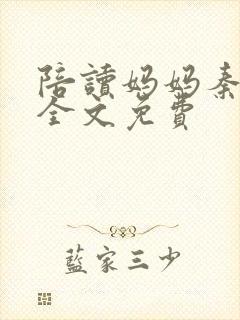 陪讀妈妈秦
全文免費
藍家三少